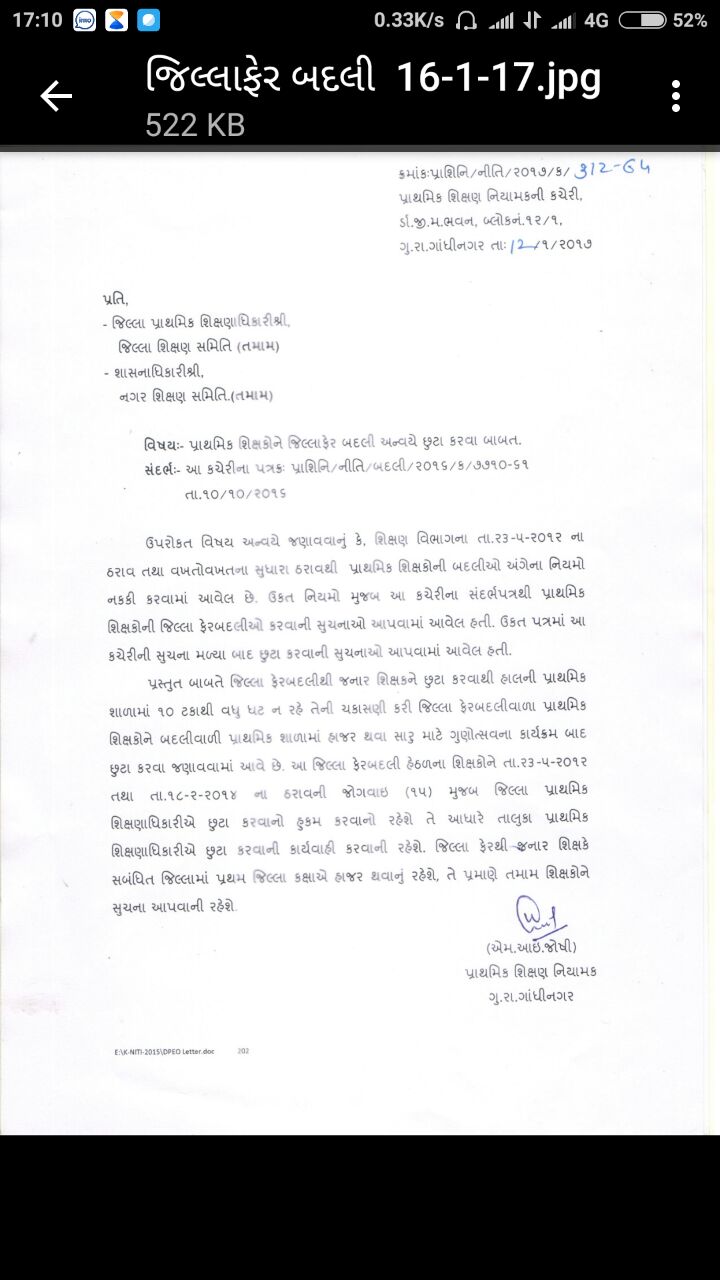 17:10 0.33K/s 4G 52%
જિલ્લાફેર બદલી 16-1-17.jpg
522 KB
ક્રમાંક:પ્રાશિનિ/નીતિ/૨૦૧૭/ક/ 312-64
પ્રાથમિક શિક્ષણ નિયામકની કચેરી,
ર્ડા.જી.મ.ભવન, બ્લોકનં.૧૨/૧,
ગુ.રા.ગાંધીનગર તા: 12/૧/૨૦૧૭
પ્રતિ,
- જિલ્લા પ્રાથમિક શિક્ષણાધિકારીશ્રી,
જિલ્લા શિક્ષણ સમિતિ (તમામ)
- શાસનાધિકારીશ્રી,
નગર શિક્ષણ સમિતિ.(તમામ)
વિષયઃ- પ્રાથમિક શિક્ષકોને જિલ્લાફેર બદલી અન્વયે છુટા કરવા બાબત.
સંદર્ભઃ- આ કચેરીના પત્રક: પ્રાશિનિ/નીતિ/બદલી/૨૦૧૬/ક/૭૭૧૦-૬૧
તા.૧૦/૧૦/૨૦૧૬
ઉપરોક્ત વિષય અન્વયે જણાવવાનું કે, શિક્ષણ વિભાગના તા.૨૩-૫-૨૦૧૨ ના
ઠરાવ તથા વખતોવખતના સુધારા ઠરાવથી પ્રાથમિક શિક્ષકોની બદલીઓ અંગેના નિયમો
નકકી કરવામાં આવેલ છે. ઉકત નિયમો મુજબ આ કચેરીના સંદર્ભપત્રથી પ્રાથમિક
શિક્ષકોની જિલ્લા ફેરબદલીઓ કરવાની સુચનાઓ આપવામાં આવેલ હતી. ઉકત પત્રમાં આ
કચેરીની સુચના મળ્યા બાદ છુટા કરવાની સુચનાઓ આપવામાં આવેલ હતી.
પ્રસ્તુત બાબતે જિલ્લા ફેરબદલીથી જનાર શિક્ષકને છુટા કરવાથી હાલની પ્રાથમિક
શાળામાં ૧૦ ટકાથી વધુ ઘટ ન રહે તેની ચકાસણી કરી જિલ્લા ફેરબદલીવાળા પ્રાથમિક
શિક્ષકોને બદલીવાળી પ્રાથમિક શાળામાં હાજર થવા સારુ માટે ગુણોત્સવના કાર્યક્રમ બાદ
છુટા કરવા જણાવવામાં આવે છે. આ જિલ્લા ફેરબદલી હેઠળના શિક્ષકોને તા.૨૩-૫-૨૦૧૨
તથા તા.૧૮-૨-૨૦૧૪ ના ઠરાવની જોગવાઇ (૧૫) મુજબ જિલ્લા પ્રાથમિક
શિક્ષણાધિકારીએ છુટા કરવાનો હુકમ કરવાનો રહેશે તે આધારે તાલુકા પ્રાથમિક
શિક્ષણાધિકારીએ છુટા કરવાની કાર્યવાહી કરવાની રહેશે. જિલ્લા ફેરથી જનાર શિક્ષકે
સબંધિત જિલ્લામાં પ્રથમ જિલ્લા કક્ષાએ હાજર થવાનું રહેશે, તે પ્રમાણે તમામ શિક્ષકોને
સુચના આપવાની રહેશે.
(એમ.આઇ.જોષી)
પ્રાથમિક શિક્ષણ નિયામક
ગુ.રા.ગાંધીનગર
E:\K-NITI-2015\DPEO Letter.doc 202